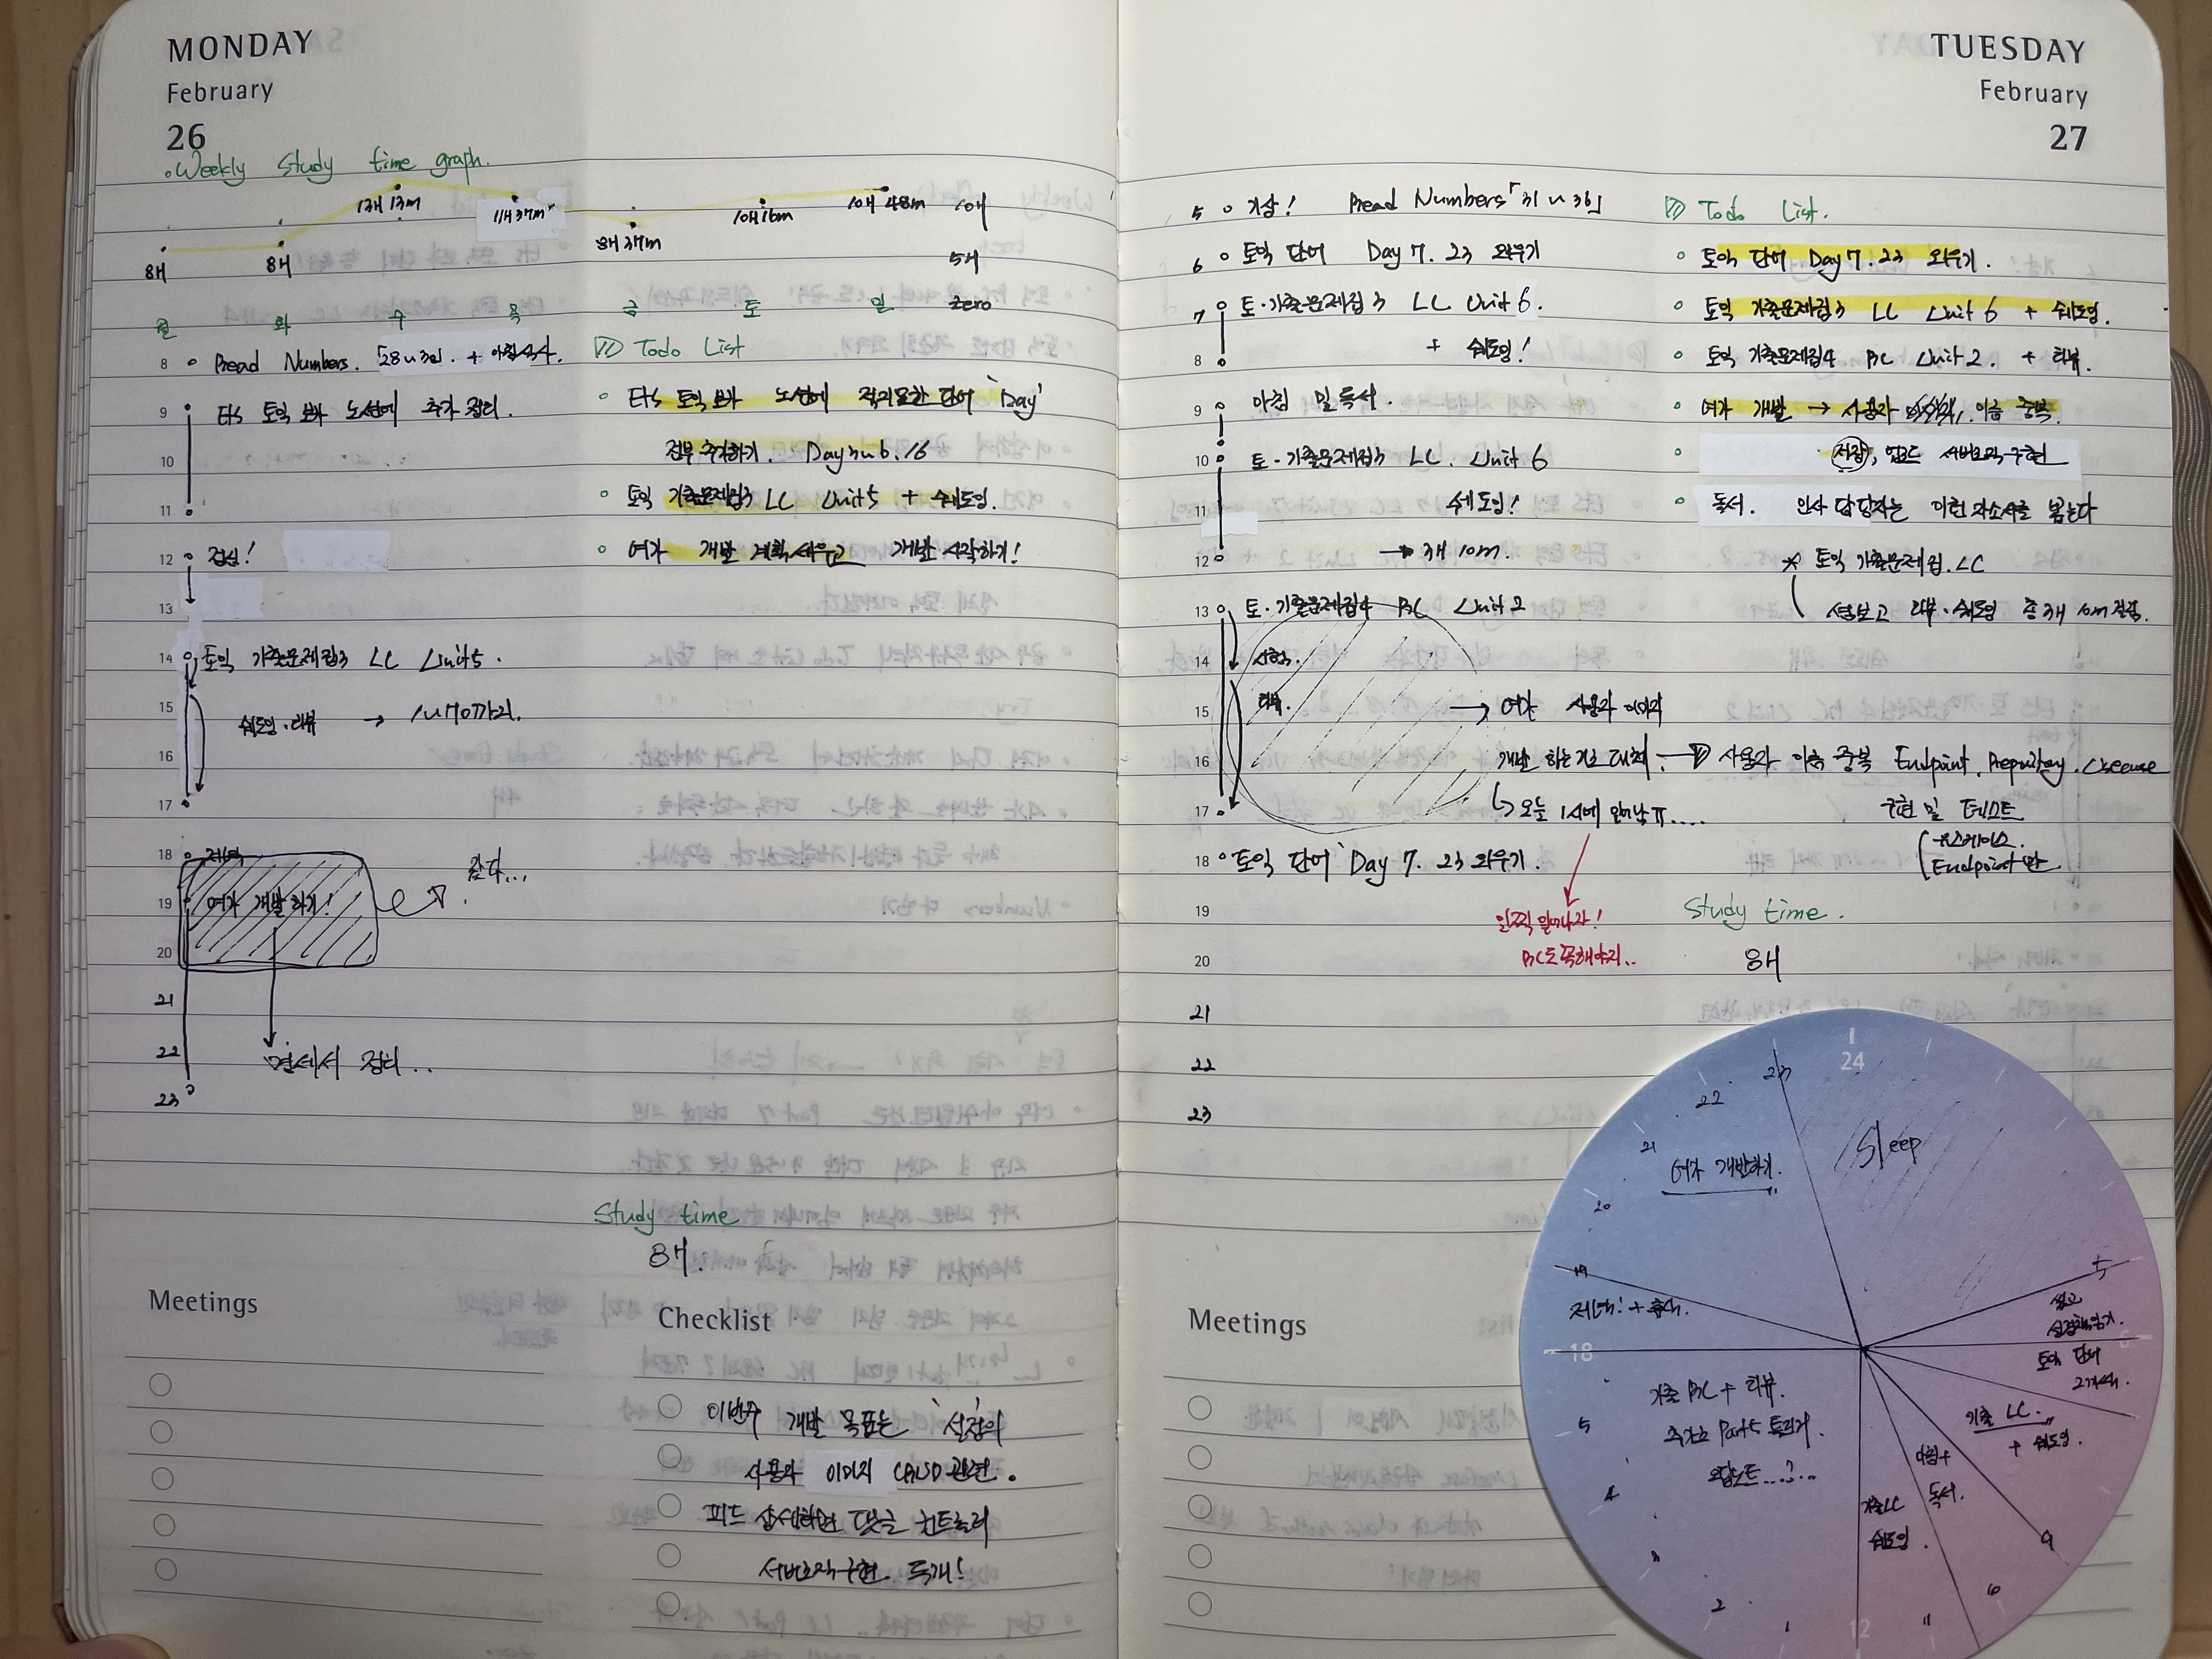 MONDAY
February
26
Weekly Study time graph.
8H
8H
13H 13m
11H 37m
8H 37m
10H 16m
10H 48m
10H
5H
Zero
월 화 수 목 금 토 일
8 Read Numbers. 「28~30」. + 아침식사.
9 ETS 토익 보카 노션에 추가 정리.
10
11
12 점심!
13
14 토익 기출문제집3 LC Unit5.
15 쉐도잉·리뷰 → 1~70까지.
16
17
18 저녁
19 여가 개발하기!
잤다...
20
21
22 면세서 정리..
23
Todo List
ETS 토익 보카 노션에 적지못한 단어 'Day'
전부 추가하기. Day 3~6. 16
토익 기출문제집3 LC Unit5 + 쉐도잉.
여가 개발 계획세우고 개발 시작하기!
Study time
8H.
Meetings
Checklist
이번주 개발 목표는 '설정의
사용자 이미지 CRUD 관련.
피드 상세화면 댓글 컨트롤러
서버로직구현. 두개!
TUESDAY
February
27
5 기상! Read Numbers「31~36」
6 토익 단어 Day 7. 23 외우기
7 토·기출문제집3 LC Unit 6.
8 + 쉐도잉!
9 아침 및 독서.
10 토·기출문제집3 LC. Unit 6
11 쉐도잉!
12 → 3H 10m.
13 토·기출문제집4 RC Unit 2
14 시험.
15 리뷰. → 여가 사용자 이미지
16 개발 하는거로 대체. → 사용자 이름 중복 Endpoint, Repository, Usecase
구현 및 테스트
유스케이스.
Endpoint만
17 오늘 1시에 일어남ㅠ....
18 토익 단어 'Day 7. 23 외우기.
19 일찍 일어나자!
20 RC도 꼭해야지..
21
22
23
Todo List.
토익 단어 Day 7. 23 외우기.
토익 기출문제집3 LC Unit 6 + 쉐도잉.
토익 기출문제집4 RC Unit 2. + 리뷰.
여가 개발 → 사용자 이름 중복
저장, 업로드 서버로직구현
독서. 인사 담당자는 이런 자소서를 뽑는다
* 토익 기출문제집.LC
시험보고 리뷰·쉐도잉 총 3H 10m 걸림.
Study time.
8H
Meetings
24
Sleep
5
씻고
6
토익 단어
2개씩.
기출 LC.
+ 쉐도잉.
9
아침+
독서.
10
11
기출LC
쉐도잉.
12
1
2
3
4
5
기출 RC + 리뷰.
추가로 Part5 틀린거
오답노트...?...
18
저녁! + 휴식.
19
20
21
22
23
여가 개발하기.